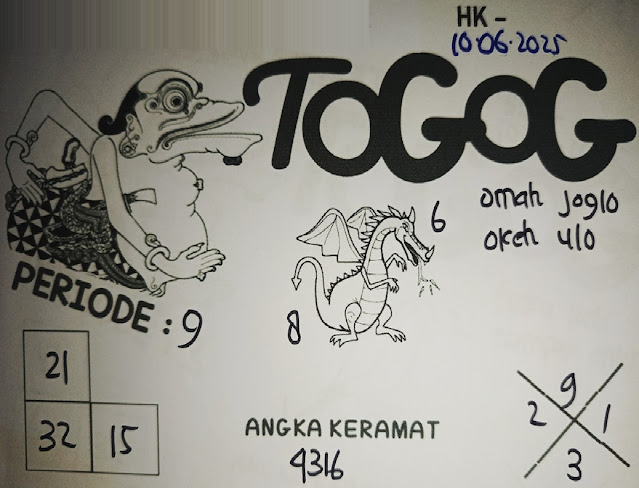 HK -
10.06.2025
TOGOG
omah joglo
okeh ulo
6
8
PERIODE : 9
21
32 15
ANGKA KERAMAT
4316
9
2 1
3